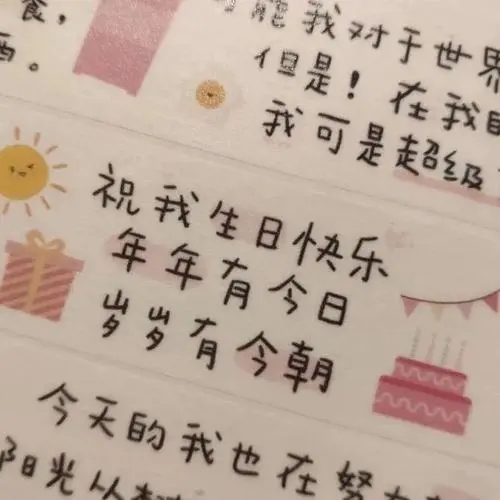 食，
酒。
可能我对于世界
但是！在我
我可是超级
祝我生日快乐
年年有今日
岁岁有今朝
今天的我也在努
阳光从